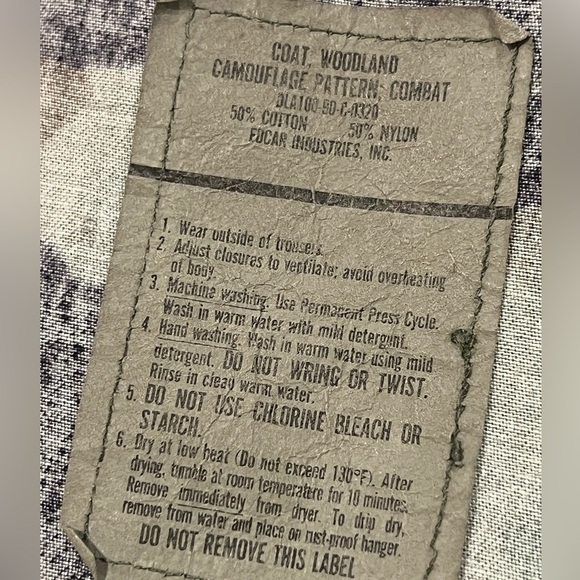 COAT, WOODLAND
CAMOUFLAGE PATTERN, COMBAT
DLA100-80-C-0320
50% COTTON 50% NYLON
EDCAR INDUSTRIES, INC.
1. Wear outside of trousers.
2. Adjust closures to ventilate; avoid overheating
of body.
3. Machine washing. Use Permanent Press Cycle.
Wash in warm water with mild detergent.
4. Hand washing. Wash in warm water using mild
detergent. DO NOT WRING OR TWIST.
Rinse in clean warm water.
5. DO NOT USE CHLORINE BLEACH OR
STARCH.
6. Dry at low heat (Do not exceed 130°F). After
drying, tumble at room temperature for 10 minutes.
Remove immediately from dryer. To drip dry,
remove from water and place on rust-proof hanger.
DO NOT REMOVE THIS LABEL